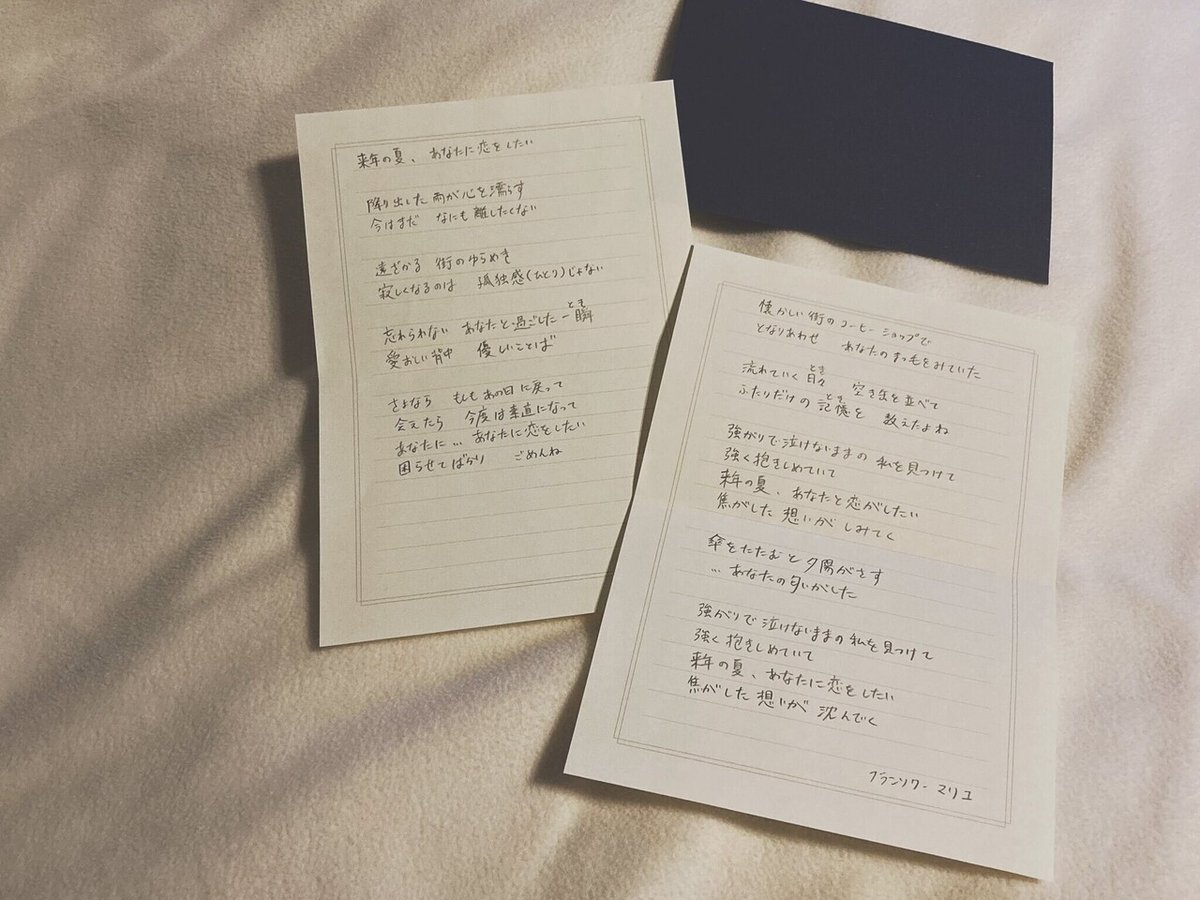 来年の夏、あなたに恋をしたい
降り出した雨が心を濡らす
今はまだ なにも離したくない
遠ざかる 街のゆらめき
寂しくなるのは 孤独感(ひとり)じゃない
とき
忘れられない あなたと過ごした一瞬
愛おしい背中 優しいことば
さよなら もしもあの日に戻って
会えたら 今度は素直になって
あなたに… あなたに恋をしたい
困らせてばかり ごめんね
懐かしい街のコーヒーショップで
となりあわせ あなたのまつ毛をみていた
とき
流れていく日々 空き缶を並べて
とき
ふたりだけの記憶を 数えたよね
強がりで泣けないままの 私を見つけて
強く抱きしめていて
来年の夏、あなたと恋がしたい
焦がした想いが しみてく
傘をたたむと夕陽がさす
… あなたの匂いがした
強がりで泣けないままの私を見つけて
強く抱きしめていて
来年の夏、あなたに恋をしたい
焦がした想いが 沈んでく
マリユ